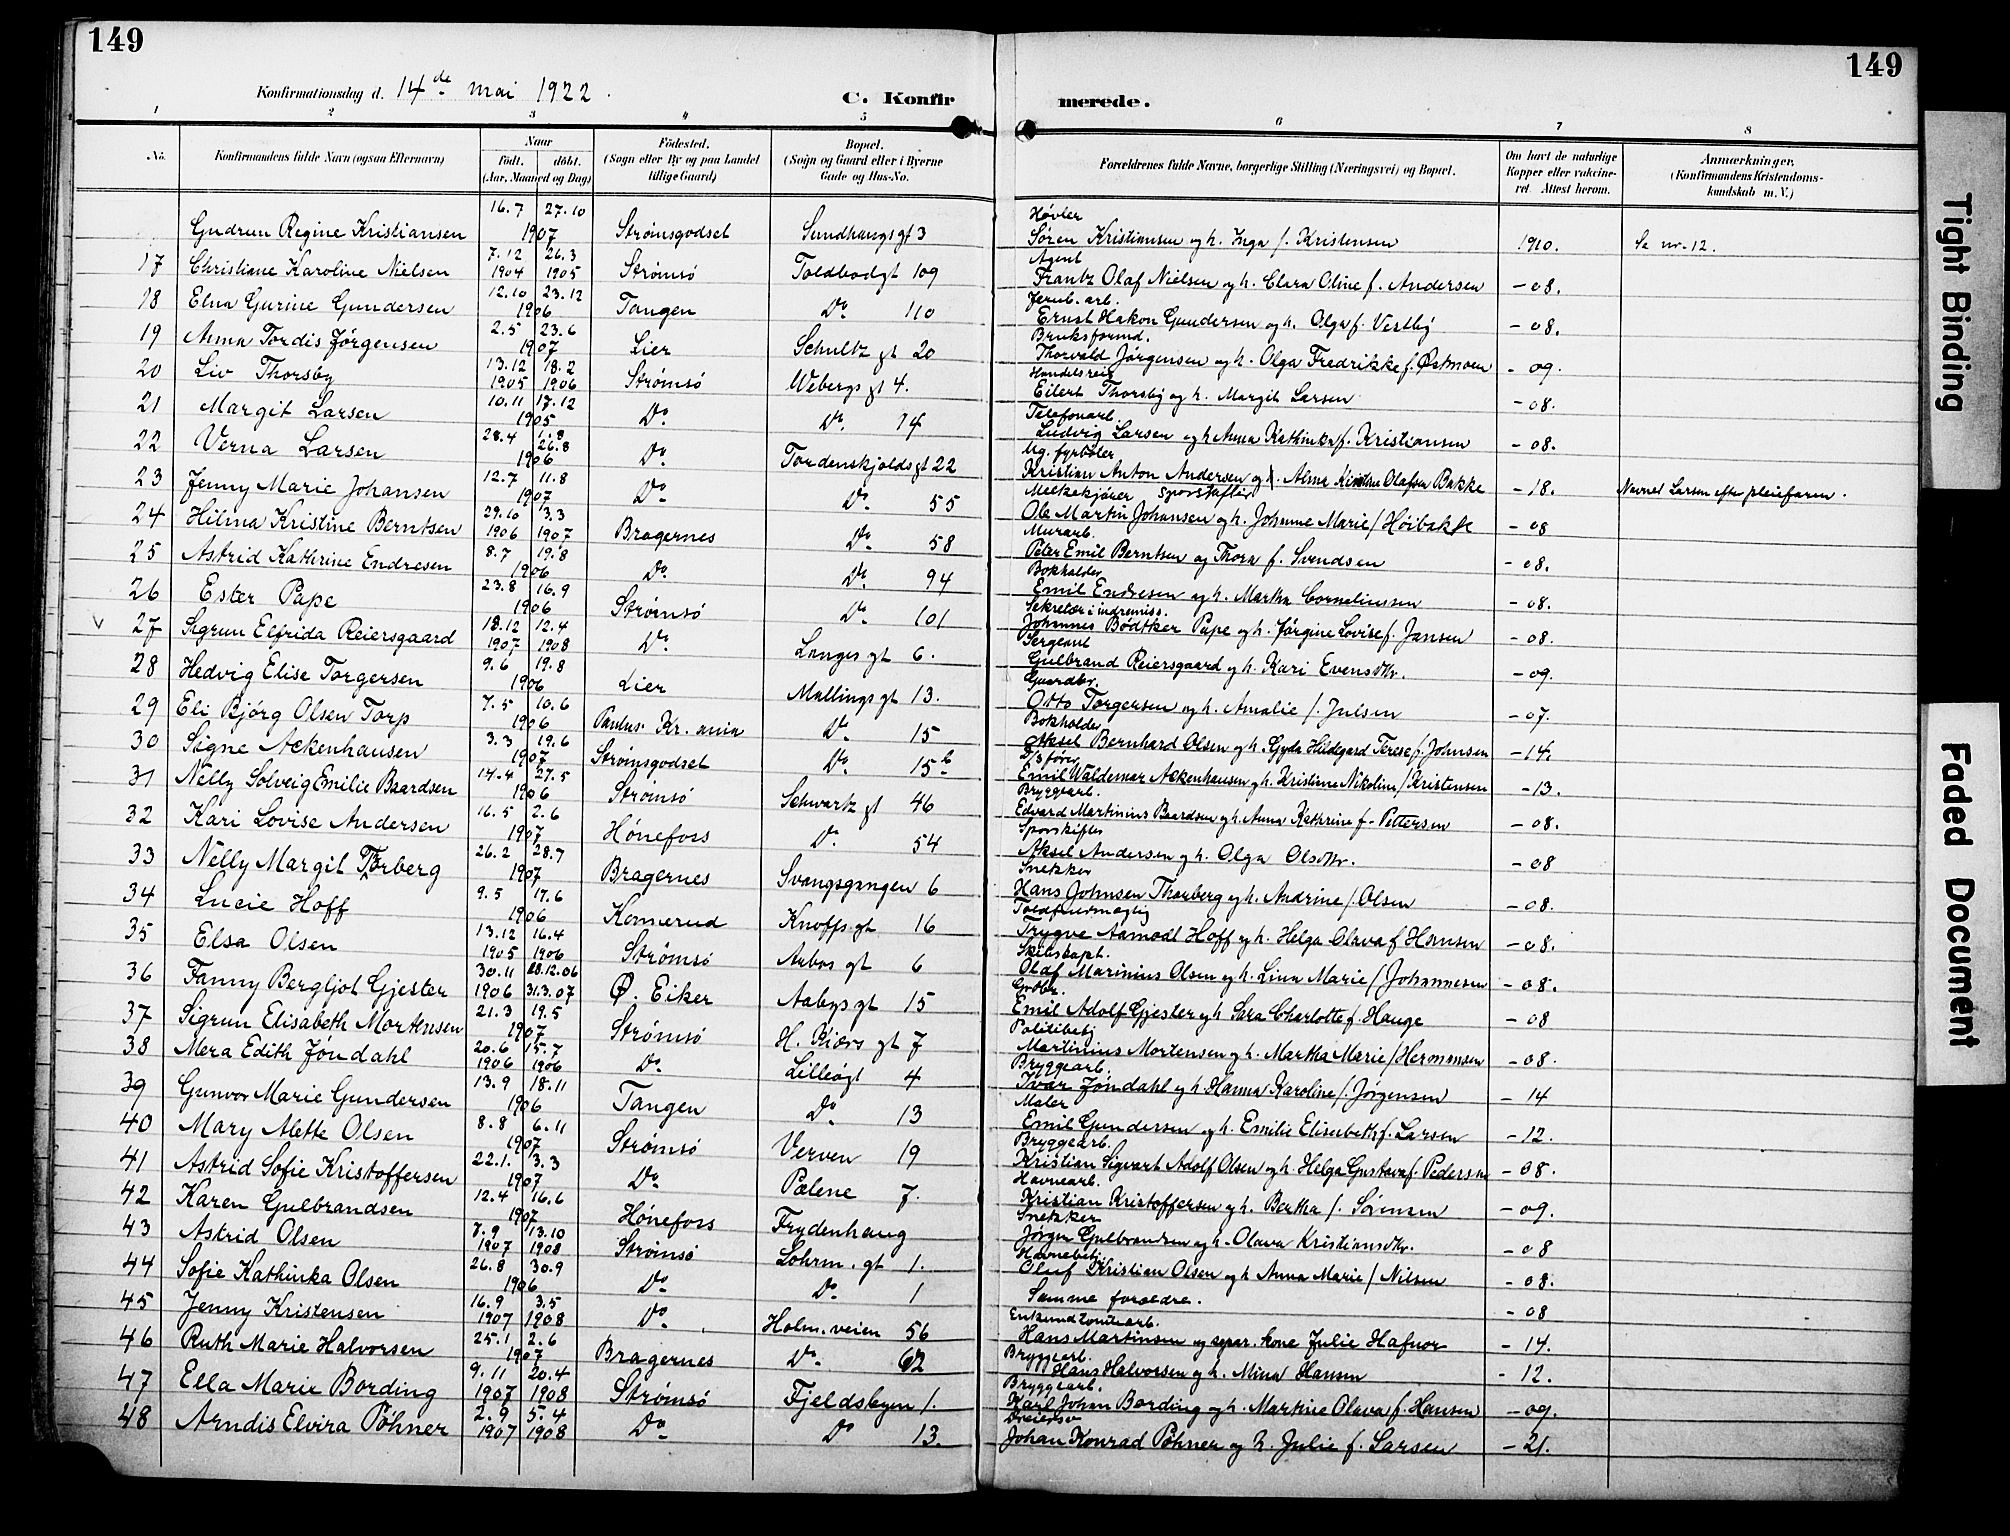 149
149
Konfirmationsdag d. 14de mai 1922.
C. Konfirmerede.
1 2 3 4 5 6 7 8
No. Konfirmandens fulde Navn (ogsaa Efternavn) Naar født. døbt. (Aar, Maaned og Dag) Fødested. (Sogn eller By og paa Landet tillige Gaard) Bopæl. (Sogn og Gaard eller i Byerne Gade og Hus-No. Forældrenes fulde Navne, borgerlige Stilling (Næringsvei) og Bopæl. Om havt de naturlige Kopper eller vakcineret. Attest herom. Anmærkninger, (Konfirmandens Kristendomskundskab m. V.)
Gudrun Regine Kristiansen 16.7 27.10 1907 Strømsgodset Sundhaugsgt 3 Høvler Søren Kristiansen og h. Inga f. Kristensen 1910. Se nr. 12.
17 Christiane Karoline Nielsen 7.12 1904 26.3 1905 Strømsö Toldbodgt 109 Agent Frantz Olaf Nielsen og h. Clara Oline f. Andersen - 08.
18 Elna Gurine Gundersen 12.10 23.12 1906 Tangen Do 110 Jernb. arb. Ernst Hakon Gundersen og h. Olga f. Vestby - 08.
19 Anna Tordis Jørgensen 2.5 23.6 1907 Lier Schultz gt 20 Bruksformd. Thorvald Jørgensen og h. Olga Fredrikke f. Østmoen - 09.
20 Liv Thorsby 13.12 1905 18.2 1906 Strømsö Webergs gt 4. Handelsreis Eilert Thorsby og h. Margit Larsen - 08.
21 Margit Larsen 10.11 17.12 1905 Do Do. 74 Telefonarb. Ludvig Larsen og h Anna Kathinka f. Kristiansen - 08.
22 Verna Larsen 28.4 26.8 1906 Do Tordenskjolds gt 22 Ug. fyrbøter Kristian Anton Andersen og Alma Kristine Olafsen Bakke - 18. Navnet Larsen efter pleiefaren.
23 Jenny Marie Johansen 12.7 11.8 1907 Do Do 55 Melkekjører Sporskifter Ole Martin Johansen og h. Johanne Marie f. Høibakke - 08
24 Hilma Kristine Berntsen 29.10 1906 3.3 1907 Bragernes Do 58 Murarb. Peter Emil Berntsen og Thora f. Svendsen - 08.
25 Astrid Kathrine Endresen 8.7 19.8 1906 Do. Do 94 Bokholder Emil Endresen og h. Martha Corneliussen - 08.
26 Ester Pape 23.8 16.9 1906 Strømsö Do 101 Sekretær i indremiss. Johannes Bødtker Pape og h. Jørgine Lovise f. Jansen - 08.
27 Sigrun Elfrida Reiersgaard 18.12 1907 12.4 1908 Do Langes gt 6. Sergeant Gulbrand Reiersgaard og h. Kari Evensdtr. - 09.
28 Hedvig Elise Torgersen 9.6 19.8 1906 Lier Mallings gt 13. Gaardbr. Otto Torgersen og h. Amalie f. Julsen - 07.
29 Eli Bjórg Olsen Torp 7.5 10.6 1906 Paulus Kr.ania Do 15 Bokholder Aksel Bernhard Olsen og h. Gyda Hildegard Terese f. Johnsen - 14.
30 Signe Ackenhausen 3.3 19.6 1907 Strømsgodset Do 15b D/s fører Emil Waldemar Ackenhausen og h. Kristiane Nikoline f. Kristensen - 13.
31 Nelly Solveig Emilie Baardsen 14.4 27.5 1906 Strømsö Schwartz gt 46 Bryggearb. Edvard Martinius Baardsen og h. Anna Kathrine f. Pettersen - 08.
32 Kari Lovise Andersen 16.5 2.6 1907 Hönefoss Do 54 Sporskifter Aksel Andersen og h. Olga Olsdtr. - 08
33 Nelly Margit Thorberg 26.2 28.7 1907 Bragernes Svangsgangen 6 Snekker Hans Johnsen Thorberg og h. Andrine f. Olsen - 08.
34 Lucie Hoff 9.5 17.6 1906 Konnerud Knoffs gt 16 Toldfuldmægtig Trygve Aamodt Hoff og h. Helga Olava f Hansen - 08.
35 Elsa Olsen 13.12 1905 16.4 1906 Strømsö Aabos gt 6 Skibskapt. Olaf Marinius Olsen og h. Lina Marie f. Johannesen - 08.
36 Fanny Bergljot Gjester 30.11 1906 28.12.06 31.3.07 Ø. Eiker Aabys gt 15 Gaardbr. Emil Adolf Gjester og h Sara Charlotte f. Hauge - 08
37 Sigrun Elisabeth Mortensen 21.3 19.5 1907 Strømsö H. Kiærs gt 7 Politibetj Martinius Mortensen og h. Martha Marie f. Hermansen - 08.
38 Mera Edith Jøndahl 20.6 1906 15.7 1906 Do Lilleögt 4 Bryggearb. Ivar Jøndahl og h. Hanna Karoline f. Jørgensen - 14
39 Gunvor Marie Gundersen 13.9 18.11 1906 Tangen Do 13 Maler Emil Gundersen og h. Emilie Elisabeth f. Larsen - 12.
40 Mary Alette Olsen 8.8 6.11 1907 Strømsö Verven 19 Bryggearb. Kristian Sigvart Adolf Olsen og h. Helga Gustava f. Pedersen - 08.
41 Astrid Sofie Kristoffersen 22.1. 3.3 1907 Do Pælene 7. Havnearb. Kristian Kristoffersen og h. Bertha f. Sørensen - 09.
42 Karen Gulbrandsen 12.4 16.6 1907 Hönefoss Frydenhaug Snekker Jørgen Gulbrandsen og h. Olava Kristiansdtr. - 08
43 Astrid Olsen 7.9 1907 13.10 1908 Strømsö Lohrm. gt 1. Havnebetj. Oluf Kristian Olsen og h Anna Marie f. Nilsen - 08.
44 Sofie Kathinka Olsen 26.8 30.9 1906 Do Do 1 Samme forældre. - 08
45 Jenny Kristensen 16.9 1907 3.5 1908 Do Holm. veien 56 Enkemd tomtearb. Hans Martinsen og separ. kone Julie Hafnor - 14.
46 Ruth Marie Halvorsen 25.1 2.6 1907 Bragernes Do 62 Bryggearb. Hans Halvorsen og h. Mina Hansen - 12.
47 Ella Marie Bording 9.11 1907 20.4 1908 Strømsö Fjeldsbyen 1. Bryggearb. Karl Johan Bording og h. Martine Olava f. Hansen - 09.
48 Arndis Elvira Pöhner 2.9 1907 5.4 1908 Do Do 13. Dreiersv Johan Konrad Pöhner og h. Julie f. Larsen - 21.
Tight Binding
Faded Document